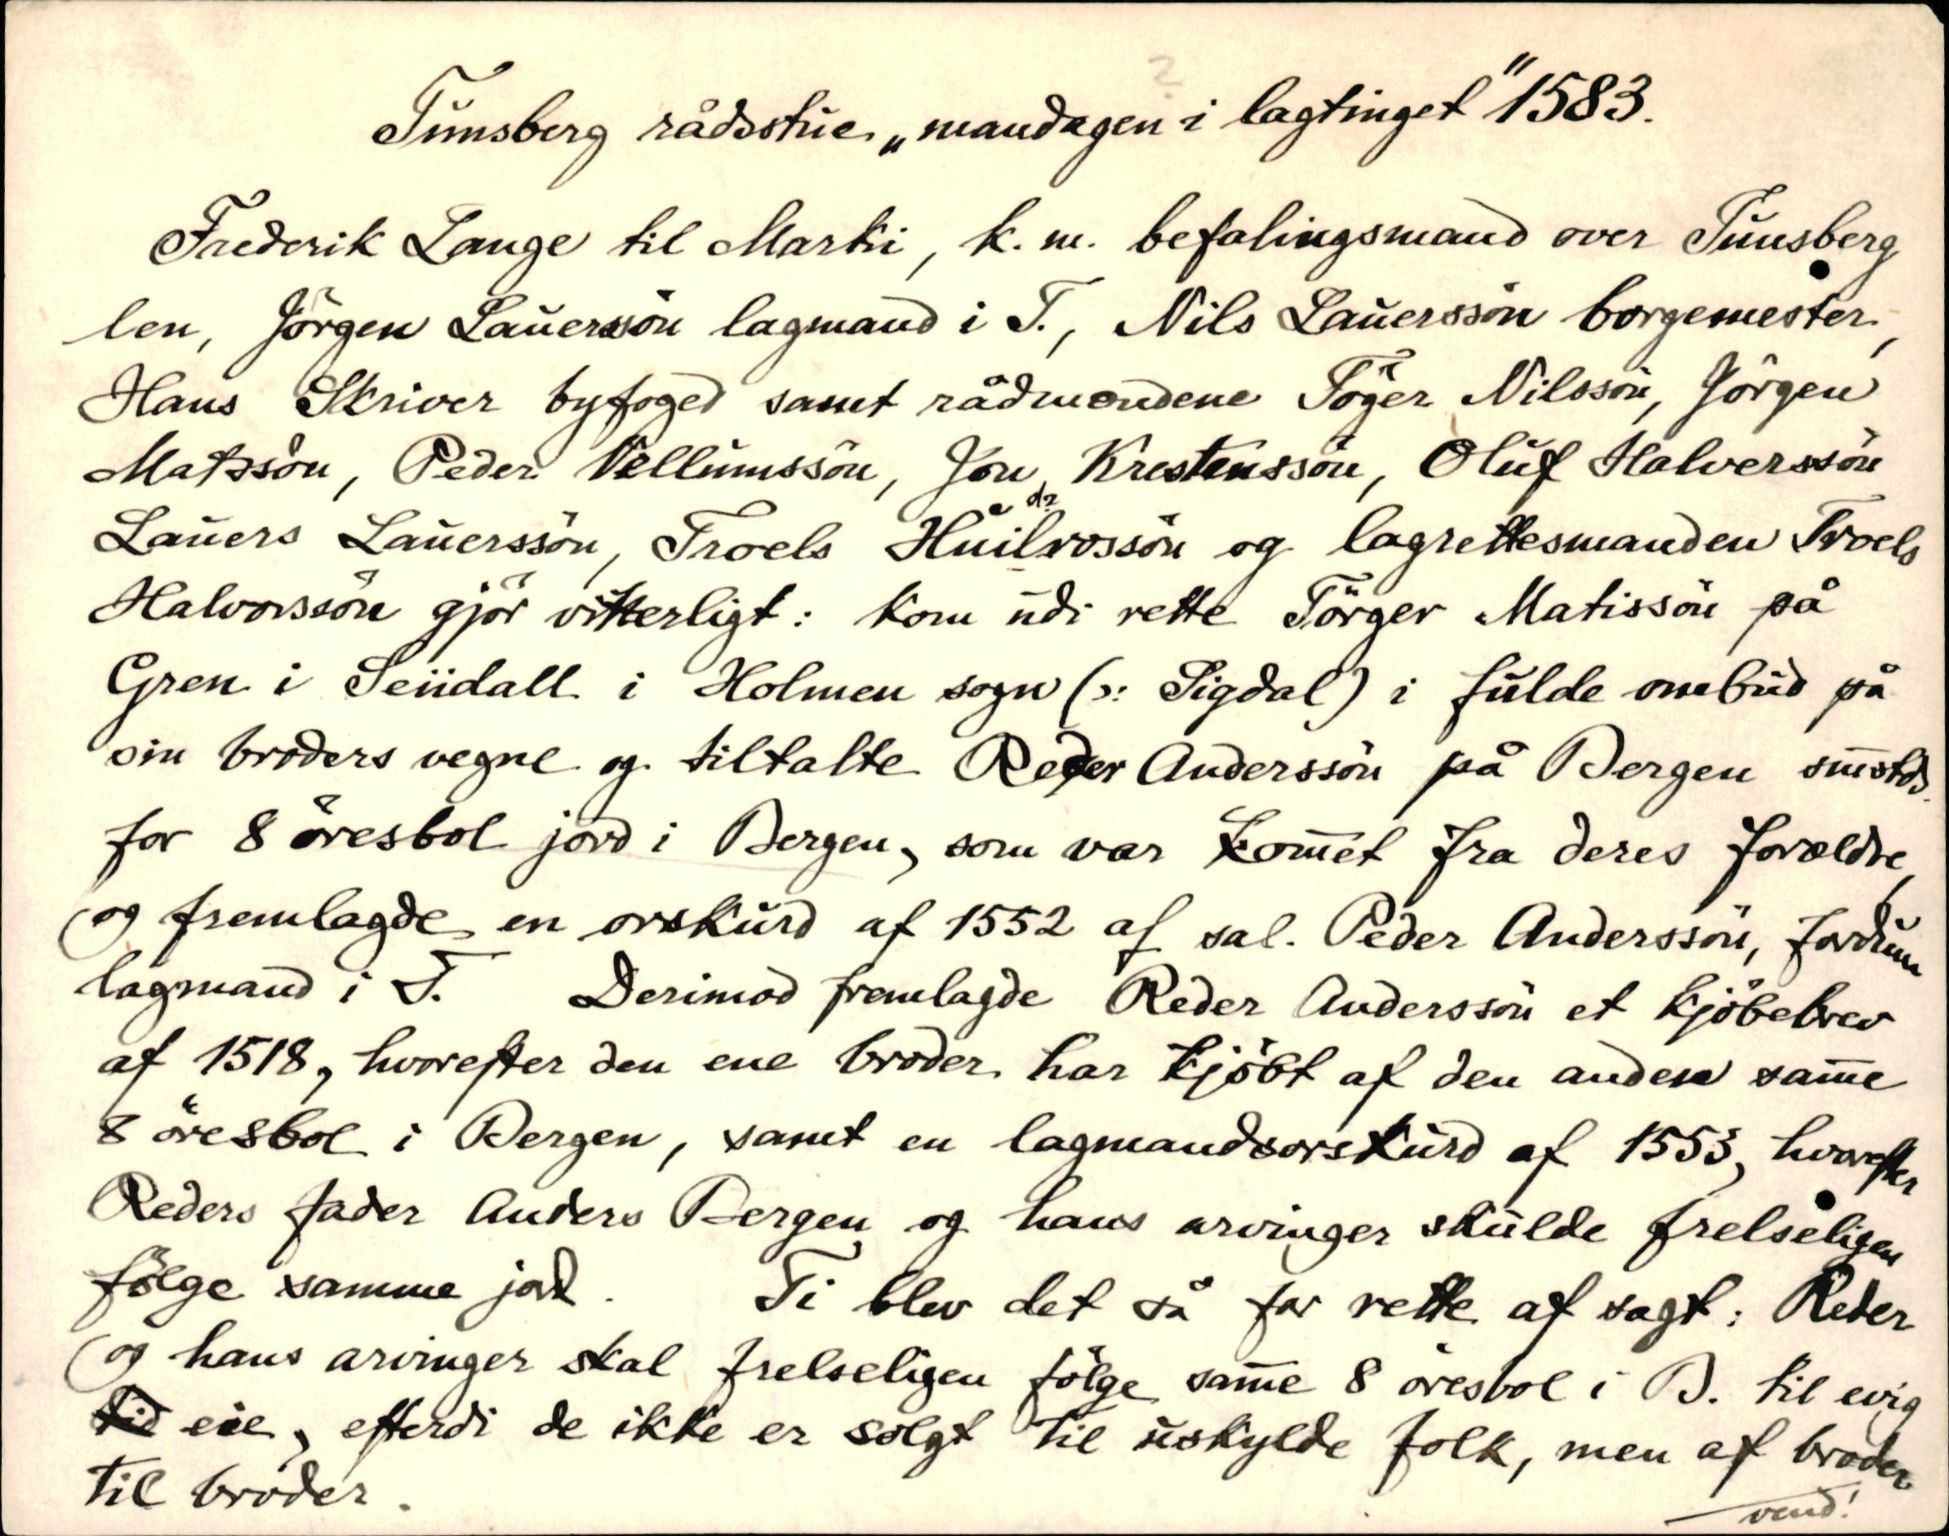 ?
Tunsberg rådsstue, „mandagen i lagtinget" 1583.
Frederik Lange til Marki, k. m. befalingsmand over Tunsberg
len, Jörgen Lauerssön lagmand i T., Nils Lauerssön borgemester,
Hans Skriver byfoged samt rådmendene Töger Nilssön, Jörgen
Matssön, Peder Vellumssön, Jon Krestenssön, Oluf Halverssön
Lauers Lauerssön, Troels Huilrossön og lagrettesmanden Troels
Halvorssön gjör vitterligt: kom udi rette Törger Matissön på
Gren i Seiidall i Holmen sogn (ɔ: Sigdal) i fulde ombud på
sin broders vegne og tiltalte Reder Anderssön på Bergen sm̅stds.
for 8 öresbol jord i Bergen, som var kom̅et fra deres forældre,
og fremlagde en orskurd af 1552 af sal. Peder Anderssön, fordum
lagmand i T. Derimod fremlagde Reder Anderssön et kjöbebrev
af 1518, hvorefter den ene broder har kjöbt af den anden sam̅e
8 öresbol i Bergen, samt en lagmandsorskurd af 1553, hvorefter
Reders fader Anders Bergen og hans arvinger skulde frelseligen
fölge samme jord. Ti blev det så for rette af sagt: Reder
og hans arvinger skal frelseligen fölge sam̅e 8 öresbol i B. til evig
tid eie, efterdi de ikke er solgt til uskylde folk, men af broder
til broder.
vend!